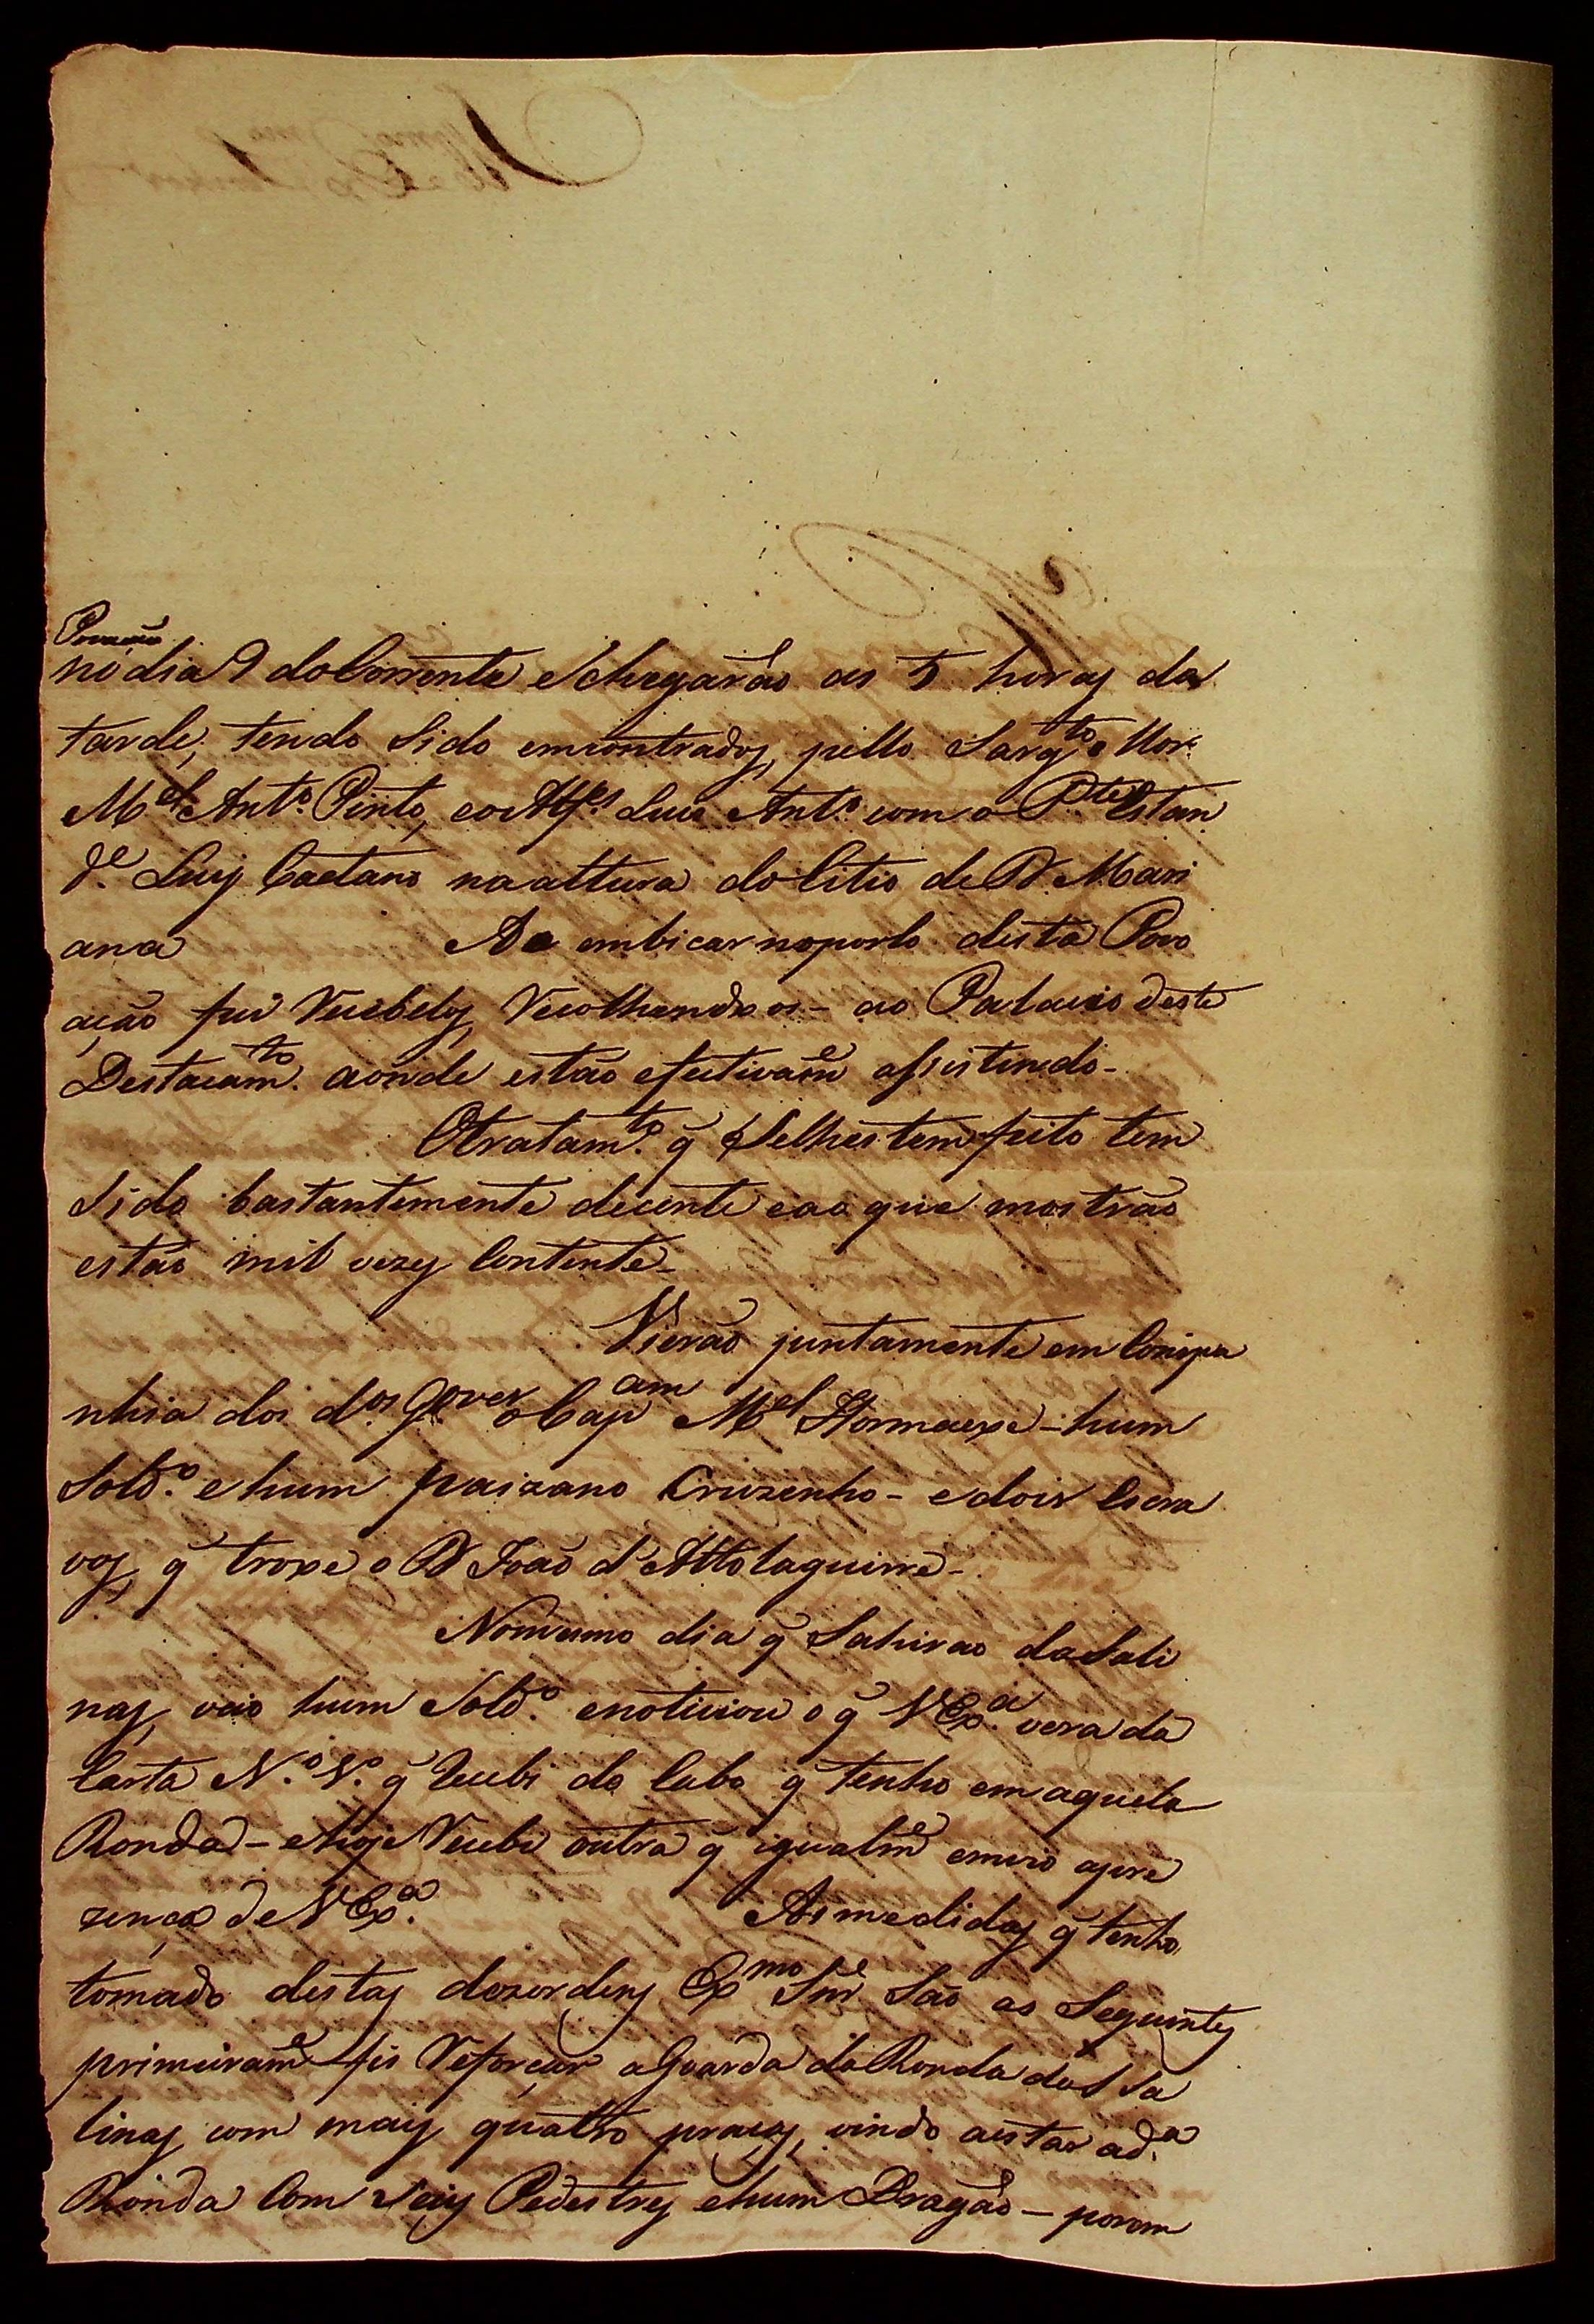 no dia 9 do Corrente e chegarão as 5 horas da
tarde, tendo Sido emcontrados, pello Sargto Mor
Mel Anto Pinto, eo Alfes Luis Anto com o Pta Estan
de Luis Caetano na altura do Citio de D Mari
ana Ao embicar no porto desta Povo
ação fui Recebelos Recolhendo os - ao Palacio deste
Destacamto aonde estão efectivame assistindo -
O tratamto q̃ Selhes tem feito tem
Sido bastantemente decente e ao que mostrão
estão mil vezes Contente -
Vierão juntamente em Compa
nhia dos dos Goveres o Capam Mel - hum
Soldo e hum paizano Cruzenho - e dois Escra
vos, q̃ troxe o D João d'Attolaguirre -
No mesmo dia q̃ Sahirao da Sali
nas, veio hum Soldo e noticiou o q̃ VExa vera da
Carta No Vo q̃ Recebi do Cabo q̃ tenho em aquela
Ronda - e hoje Recebi outra q̃ igualme emvio apre
zença de VExa As medidas q̃ tenho
tomado destas dezordens Exmo Snr São as Seguintes
primeirame fis Reforçar a Guarda da Ronda das Sa
linas com mais quatro praças, vindo aestar a da
Ronda Com Seis Pedestres e hum Dragão - porem